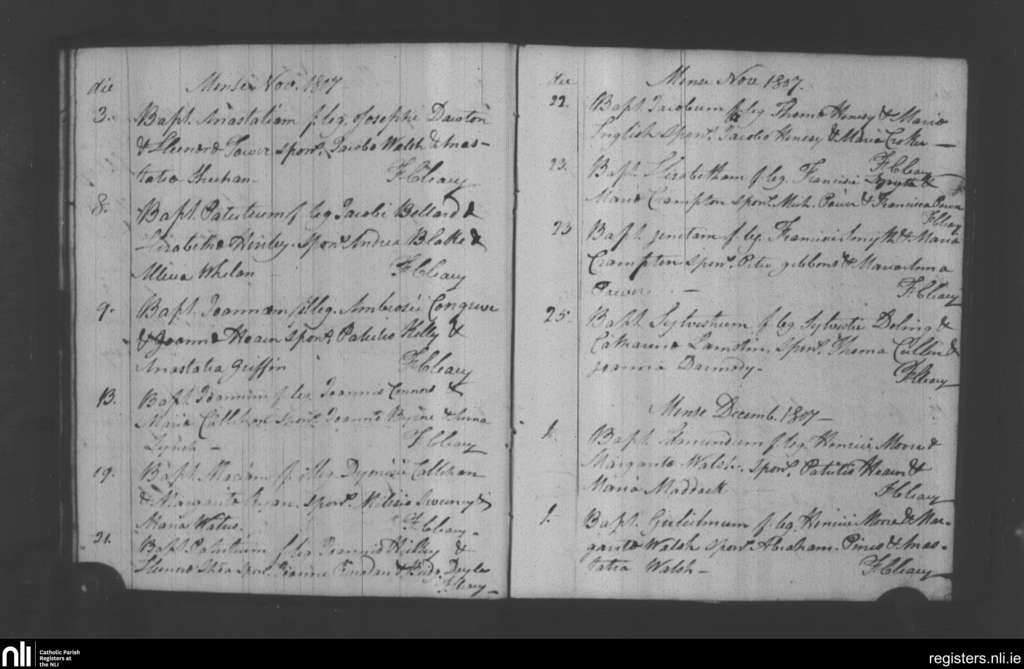 die Mense Nov. 1807
3. Bapt. Anastatiam f. leg. Josephi Dawton
& Elenora Power spon. Jacobo Walsh & Anas-
tatia Sheehan
F. Cleary
8. Bapt. Patritium f. leg. Jacobi Bollard &
Elizabetha Hinley. spon. Andrea Blake &
Alicia Whelan
F. Cleary
9. Bapt. Joannam illeg. Ambrosii Congreve
& Joanna Heain spon. Patritio Kelly &
Anastatia Griffin
F. Cleary
13. Bapt. Joannem f. leg. Joannis Connors &
Maria Callihan spon. Joanne Byrne & Anna
Lynch
F. Cleary
19. Bapt. Mariam f. illeg. Callihan
& Margarita Ryan. spon. Milesio Sweeny &
Maria Waters.
F. Cleary
21. Bapt. Patritium f. leg. Joannis Hickey &
Elenora Shea spon. Joanne & Doyle
F. Cleary
die Mense Nove 1807.
22. Bapt. Jacobum f. leg. Thoma Henesy & Maria
English spon. Jacobo Henesy & Maria Croker
F. Cleary
23. Bapt. Elizabetham f. leg. Francisci Smyth &
Maria Crampton spon. Mich. Power & Francisca Power
F. Cleary
23 Bapt. f. leg. Francisci Smyth & Maria
Crampton spon. Petro Gibbons & Maria Anna
Power
F. Cleary
25. Bapt. Sylvestrum f. leg. Sylvestri &
Catharina spon. Thoma Cullen &
Joanna Darmody.
F. Cleary
Mense Decemb. 1807
1. Bapt. Edmundum f. leg. Henrici Morre &
Margarita Walsh. spon. Patritio Heain &
Maria Maddock
F. Cleary
1. Bapt. Gulielmum f. leg. Henrici Morre & Mar-
garita Walsh spon. Abraham & Anas-
tatia Walsh
F. Cleary
nli Catholic Parish
Registers at
the NLI
registers.nli.ie